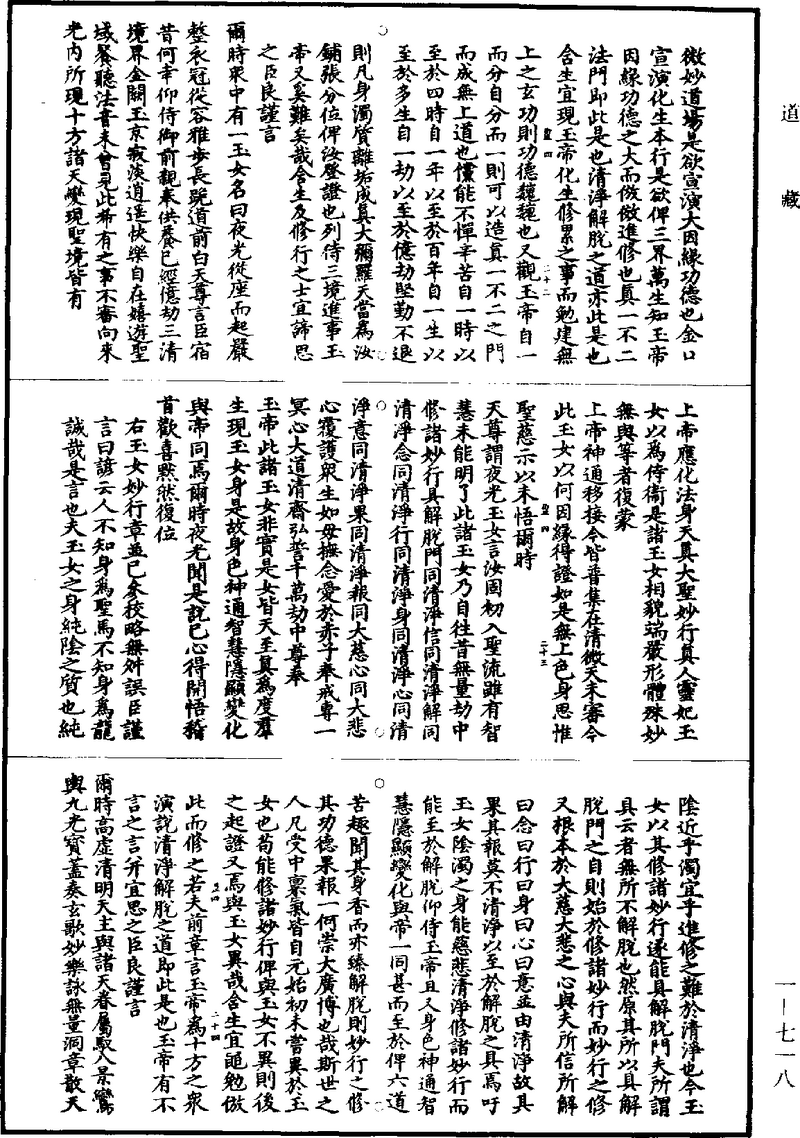 道藏
微妙道場是欲宣演大因緣功德也金口
宣演化生本行是欲俾三界萬生知玉帝
因緣功德之大而倣倣進修也真一不二
法門即此是也清淨解脫之道亦此是也
含生宜現玉帝化生修累之事而勉建無
上之玄功則功德巍巍也又觀玉帝自一
而分自分而一則可以造真一不二之門
而成無上道也儻能不憚辛苦自一時以
至於四時自一年以至於百年自一生以
至於多生自一劫以至於億劫堅勤不退
則凡身濁質離垢成真大彌羅天當為汝
鋪張分位俾汝登證也列侍三境進事玉
帝又奚難矣哉含生及修行之士宜諦思
之臣良謹言
爾時眾中有一玉女名曰夜光從座而起嚴
整衣冠從容雅步長跪道前白天尊言臣宿
昔何幸仰侍御前親奉供養已經億劫三清
境界金闕玉京寂淡逍遙快樂自在嬉遊聖
域餐聽法音未曾見此希有之事不審向來
光內所現十方諸天變現聖境皆有
上帝應化法身天真大聖妙行真人靈妃玉
女以為侍衛是諸玉女相貌端嚴形體殊妙
無與等者復蒙
上帝神通移接令皆普集在清微天未審今
此玉女以何因緣得證如是無上色身思惟
聖慈示以未悟爾時
天尊謂夜光玉女言汝因初入聖流雖有智
慧未能明了此諸玉女乃自往昔無量劫中
修諸妙行具解脫門同清淨信同清淨解同
清淨念同清淨行同清淨身同清淨心同清
淨意同清淨果同清淨報同大慈心同大悲
心覆護眾生如母撫念愛於赤子奉戒專一
冥心大道清齋弘誓千萬劫中尊奉
玉帝此諸玉女非實是女皆天主真為度群
生現玉女身是故身色神通智慧隱顯變化
與帝同焉爾時夜光聞是說已心得開悟稽
首歡喜默然復位
右玉女妙行章並已參校略無舛誤臣謹
言曰諺云人不知身為聖馬不知身為龍
誠哉是言也夫玉女之身純陰之質也純
陰近乎濁宜乎進修之難於清淨也今玉
女以其修諸妙行遂能具解脫門夫所謂
具云者無所不解脫也然原其所以具解
脫門之自則始於修諸妙行而妙行之修
又根本於大慈大悲之心與夫所信所解
曰念曰行曰身曰心曰意並由清淨故其
果其報莫不清淨以至於解脫之具焉吁
玉女陰濁之身能慈悲清淨修諸妙行而
能至於解脫仰侍玉帝且又身色神通智
慧隱顯變化與帝一同甚而至於俾六道
苦趣聞其身香而亦臻解脫則妙行之修
其功德果報一何崇大廣博也哉斯世之
人凡受中稟氣皆自元始初未嘗異於玉
女也苟能修諸妙行俾與玉女不異則後
之超證又焉與玉女異哉含生宜黽勉倣
此而修之若夫前章言玉帝為十方之眾
演說清淨解脫之道即此是也玉帝有不
言之言并宜思之臣良謹言
爾時高虛清明天主與諸天眷屬馭八景鸞
輿九光寶蓋奏玄歌妙樂詠無量洞章散天
一—七一八